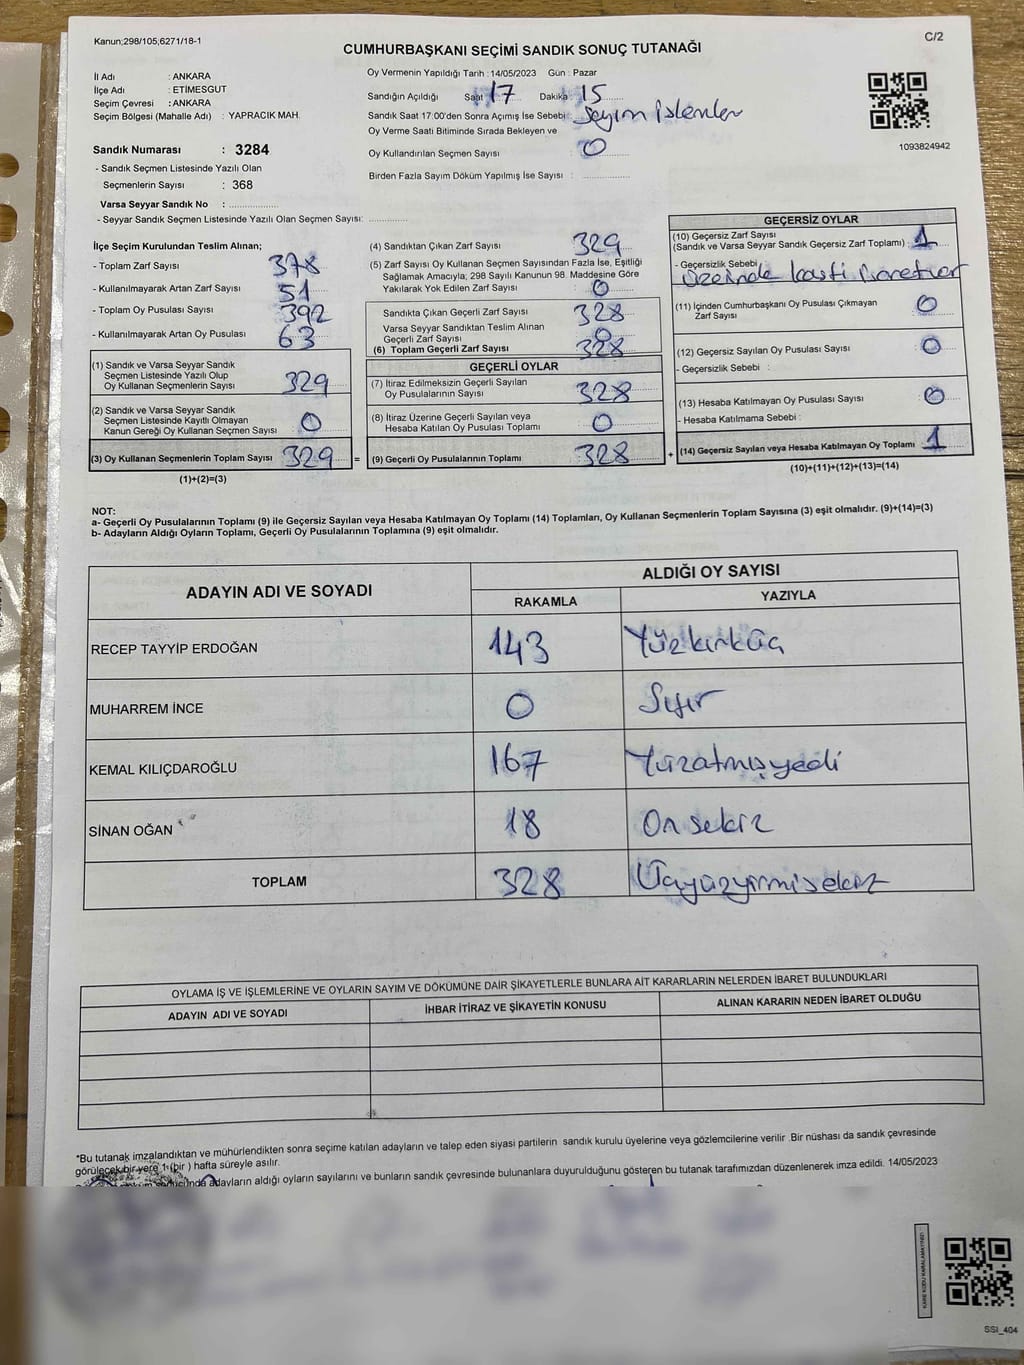 Kanun;298/105;6271/18-1
C/2
CUMHURBAŞKANI SEÇİMİ SANDIK SONUÇ TUTANAĞI
İl Adı : ANKARA
İlçe Adı : ETİMESGUT
Seçim Çevresi : ANKARA
Seçim Bölgesi (Mahalle Adı) : YAPRACIK MAH.
Sandık Numarası : 3284
- Sandık Seçmen Listesinde Yazılı Olan
Seçmenlerin Sayısı : 368
Varsa Seyyar Sandık No : ..................
- Seyyar Sandık Seçmen Listesinde Yazılı Olan Seçmen Sayısı: ..............
Oy Vermenin Yapıldığı Tarih : 14/05/2023 Gün : Pazar
Sandığın Açıldığı Saat 17 Dakika : 15
Sandık Saat 17:00'den Sonra Açımış İse Sebebi : Sayım işlemler
Oy Verme Saati Bitiminde Sırada Bekleyen ve
Oy Kullandırılan Seçmen Sayısı : 0
Birden Fazla Sayım Döküm Yapılmış İse Sayısı : ................
1093824942
İlçe Seçim Kurulundan Teslim Alınan;
- Toplam Zarf Sayısı 378
- Kullanılmayarak Artan Zarf Sayısı 51
- Toplam Oy Pusulası Sayısı 392
- Kullanılmayarak Artan Oy Pusulası 63
(1) Sandık ve Varsa Seyyar Sandık
Seçmen Listesinde Yazılı Olup
Oy Kullanan Seçmenlerin Sayısı 329
(2) Sandık ve Varsa Seyyar Sandık
Seçmen Listesinde Kayıtlı Olmayan
Kanun Gereği Oy Kullanan Seçmen Sayısı 0
(3) Oy Kullanan Seçmenlerin Toplam Sayısı 329 =
(1)+(2)=(3)
(4) Sandıktan Çıkan Zarf Sayısı 329
(5) Zarf Sayısı Oy Kullanan Seçmen Sayısından Fazla İse, Eşitliği
Sağlamak Amacıyla, 298 Sayılı Kanunun 98. Maddesine Göre
Yakılarak Yok Edilen Zarf Sayısı : 0
Sandıkta Çıkan Geçerli Zarf Sayısı : 328
Varsa Seyyar Sandıktan Teslim Alınan
Geçerli Zarf Sayısı : 0
(6) Toplam Geçerli Zarf Sayısı 328
GEÇERLİ OYLAR
(7) İtiraz Edilmeksizin Geçerli Sayılan
Oy Pusulalarının Sayısı : 328
(8) İtiraz Üzerine Geçerli Sayılan veya
Hesaba Katılan Oy Pusulası Toplamı : 0
(9) Geçerli Oy Pusulalarının Toplamı 328 +
GEÇERSİZ OYLAR
(10) Geçersiz Zarf Sayısı
(Sandık ve Varsa Seyyar Sandık Geçersiz Zarf Toplamı) : 1
- Geçersizlik Sebebi :
Üzerinde kasti işaretler
(11) İçinden Cumhurbaşkanı Oy Pusulası Çıkmayan
Zarf Sayısı : 0
(12) Geçersiz Sayılan Oy Pusulası Sayısı : 0
- Geçersizlik Sebebi :
(13) Hesaba Katılmayan Oy Pusulası Sayısı : 0
- Hesaba Katılmama Sebebi :
(14) Geçersiz Sayılan veya Hesaba Katılmayan Oy Toplamı 1
(10)+(11)+(12)+(13)=(14)
NOT:
a- Geçerli Oy Pusulalarının Toplamı (9) ile Geçersiz Sayılan veya Hesaba Katılmayan Oy Toplamı (14) Toplamları, Oy Kullanan Seçmenlerin Toplam Sayısına (3) eşit olmalıdır. (9)+(14)=(3)
b- Adayların Aldığı Oyların Toplamı, Geçerli Oy Pusulalarının Toplamına (9) eşit olmalıdır.
ADAYIN ADI VE SOYADI
ALDIĞI OY SAYISI
RAKAMLA YAZIYLA
RECEP TAYYİP ERDOĞAN 143 Yüzkırküç
MUHARREM İNCE 0 Sıfır
KEMAL KILIÇDAROĞLU 167 Yüzatmışyedi
SİNAN OĞAN 18 Onsekiz
TOPLAM 328 Üçyüzyirmisekiz
OYLAMA İŞ VE İŞLEMLERİNE VE OYLARIN SAYIM VE DÖKÜMÜNE DAİR ŞİKAYETLERLE BUNLARA AİT KARARLARIN NELERDEN İBARET BULUNDUKLARI
ADAYIN ADI VE SOYADI İHBAR İTİRAZ VE ŞİKAYETİN KONUSU ALINAN KARARIN NEDEN İBARET OLDUĞU
*Bu tutanak imzalandıktan ve mühürlendikten sonra seçime katılan adayların ve talep eden siyasi partilerin sandık kurulu üyelerine veya gözlemcilerine verilir .Bir nüshası da sandık çevresinde
görülecek bir yere 1 (bir ) hafta süreyle asılır.
adayların aldığı oyların sayılarını ve bunların sandık çevresinde bulunanlara duyurulduğunu gösteren bu tutanak tarafımızdan düzenlenerek imza edildi. 14/05/2023
SSI_404